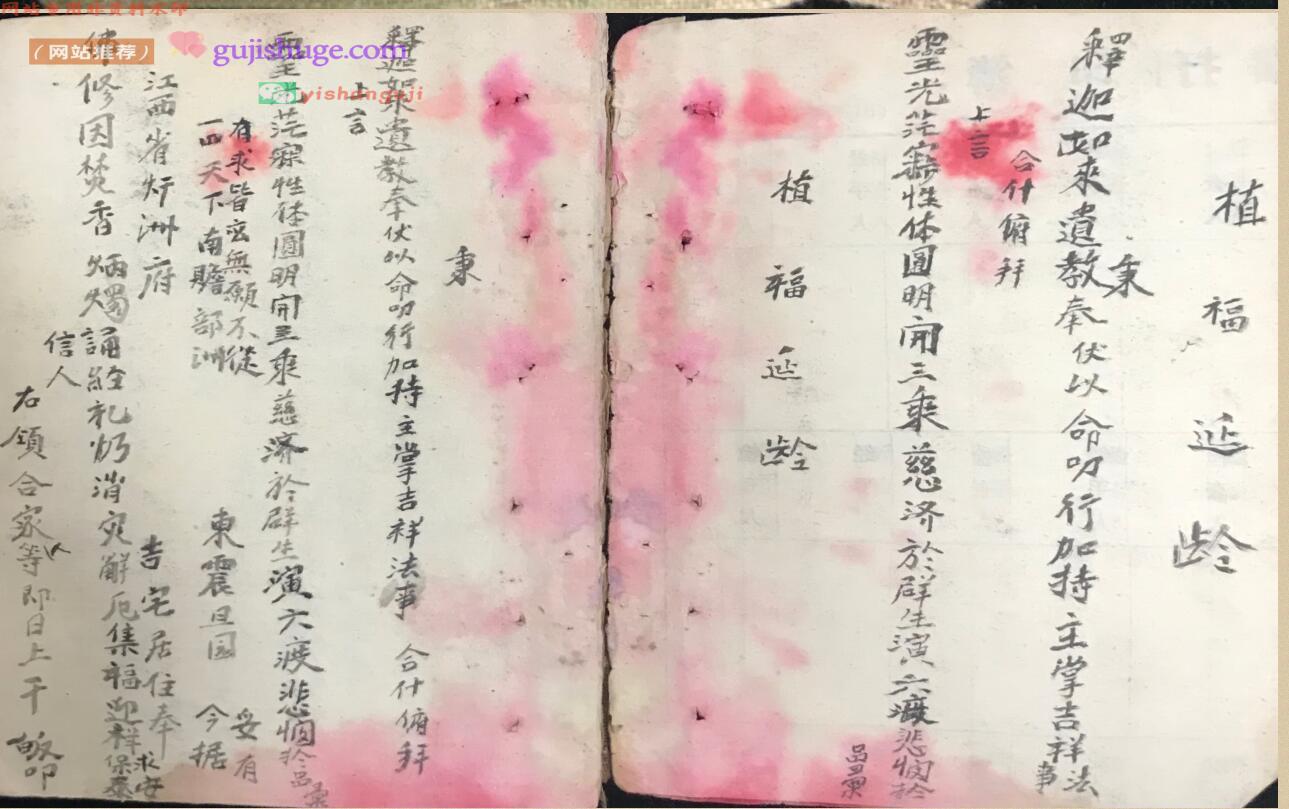 植福延龄
秉
释迦如來遺教奉伏以命叨行加持主掌吉祥法事
合什俯拜
上言
靈光茫寂性体圓明開三乘慈济於群生演六渡悲悯於品彙
植福延龄
秉
釋迦如來遺教奉伏以命叨行加持主掌吉祥法事 合什俯拜
上言
靈光茫寂性体圓明開三乘慈济於群生演六渡悲悯於品彙
有求皆 無願不從
一四天下南贍部洲 東震旦国 今据
江西省 洲府 吉宅居住奉
修因焚香炳燭誦經礼 消灾解厄集福迎祥保泰求安
信人
右領合家等即日上干
网站推荐
gujishuge.com
yishanguji